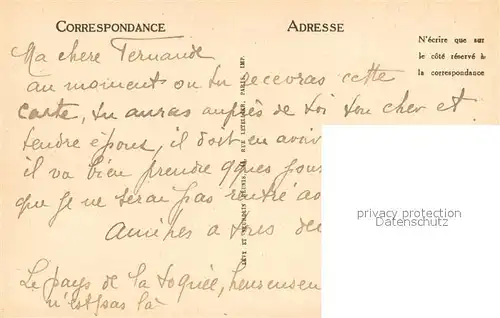 CORRESPONDANCE
ADRESSE
N'écrire que sur
le côté réservé à
la correspondance
Ma chere Fernande
au moment ou tu recevras cette
carte, tu auras auprès de toi ton cher et
tendre époux, il doit en avoir
il va bien prendre qques jours
que je ne serai pas rentré
Amitiés a tous deux
Le pays de la
n'est pas là
LÉVY ET NEURDEIN RÉUNIS, 44, RUE LETELLIER, PARIS. IMP.
privacy protection
Datenschutz